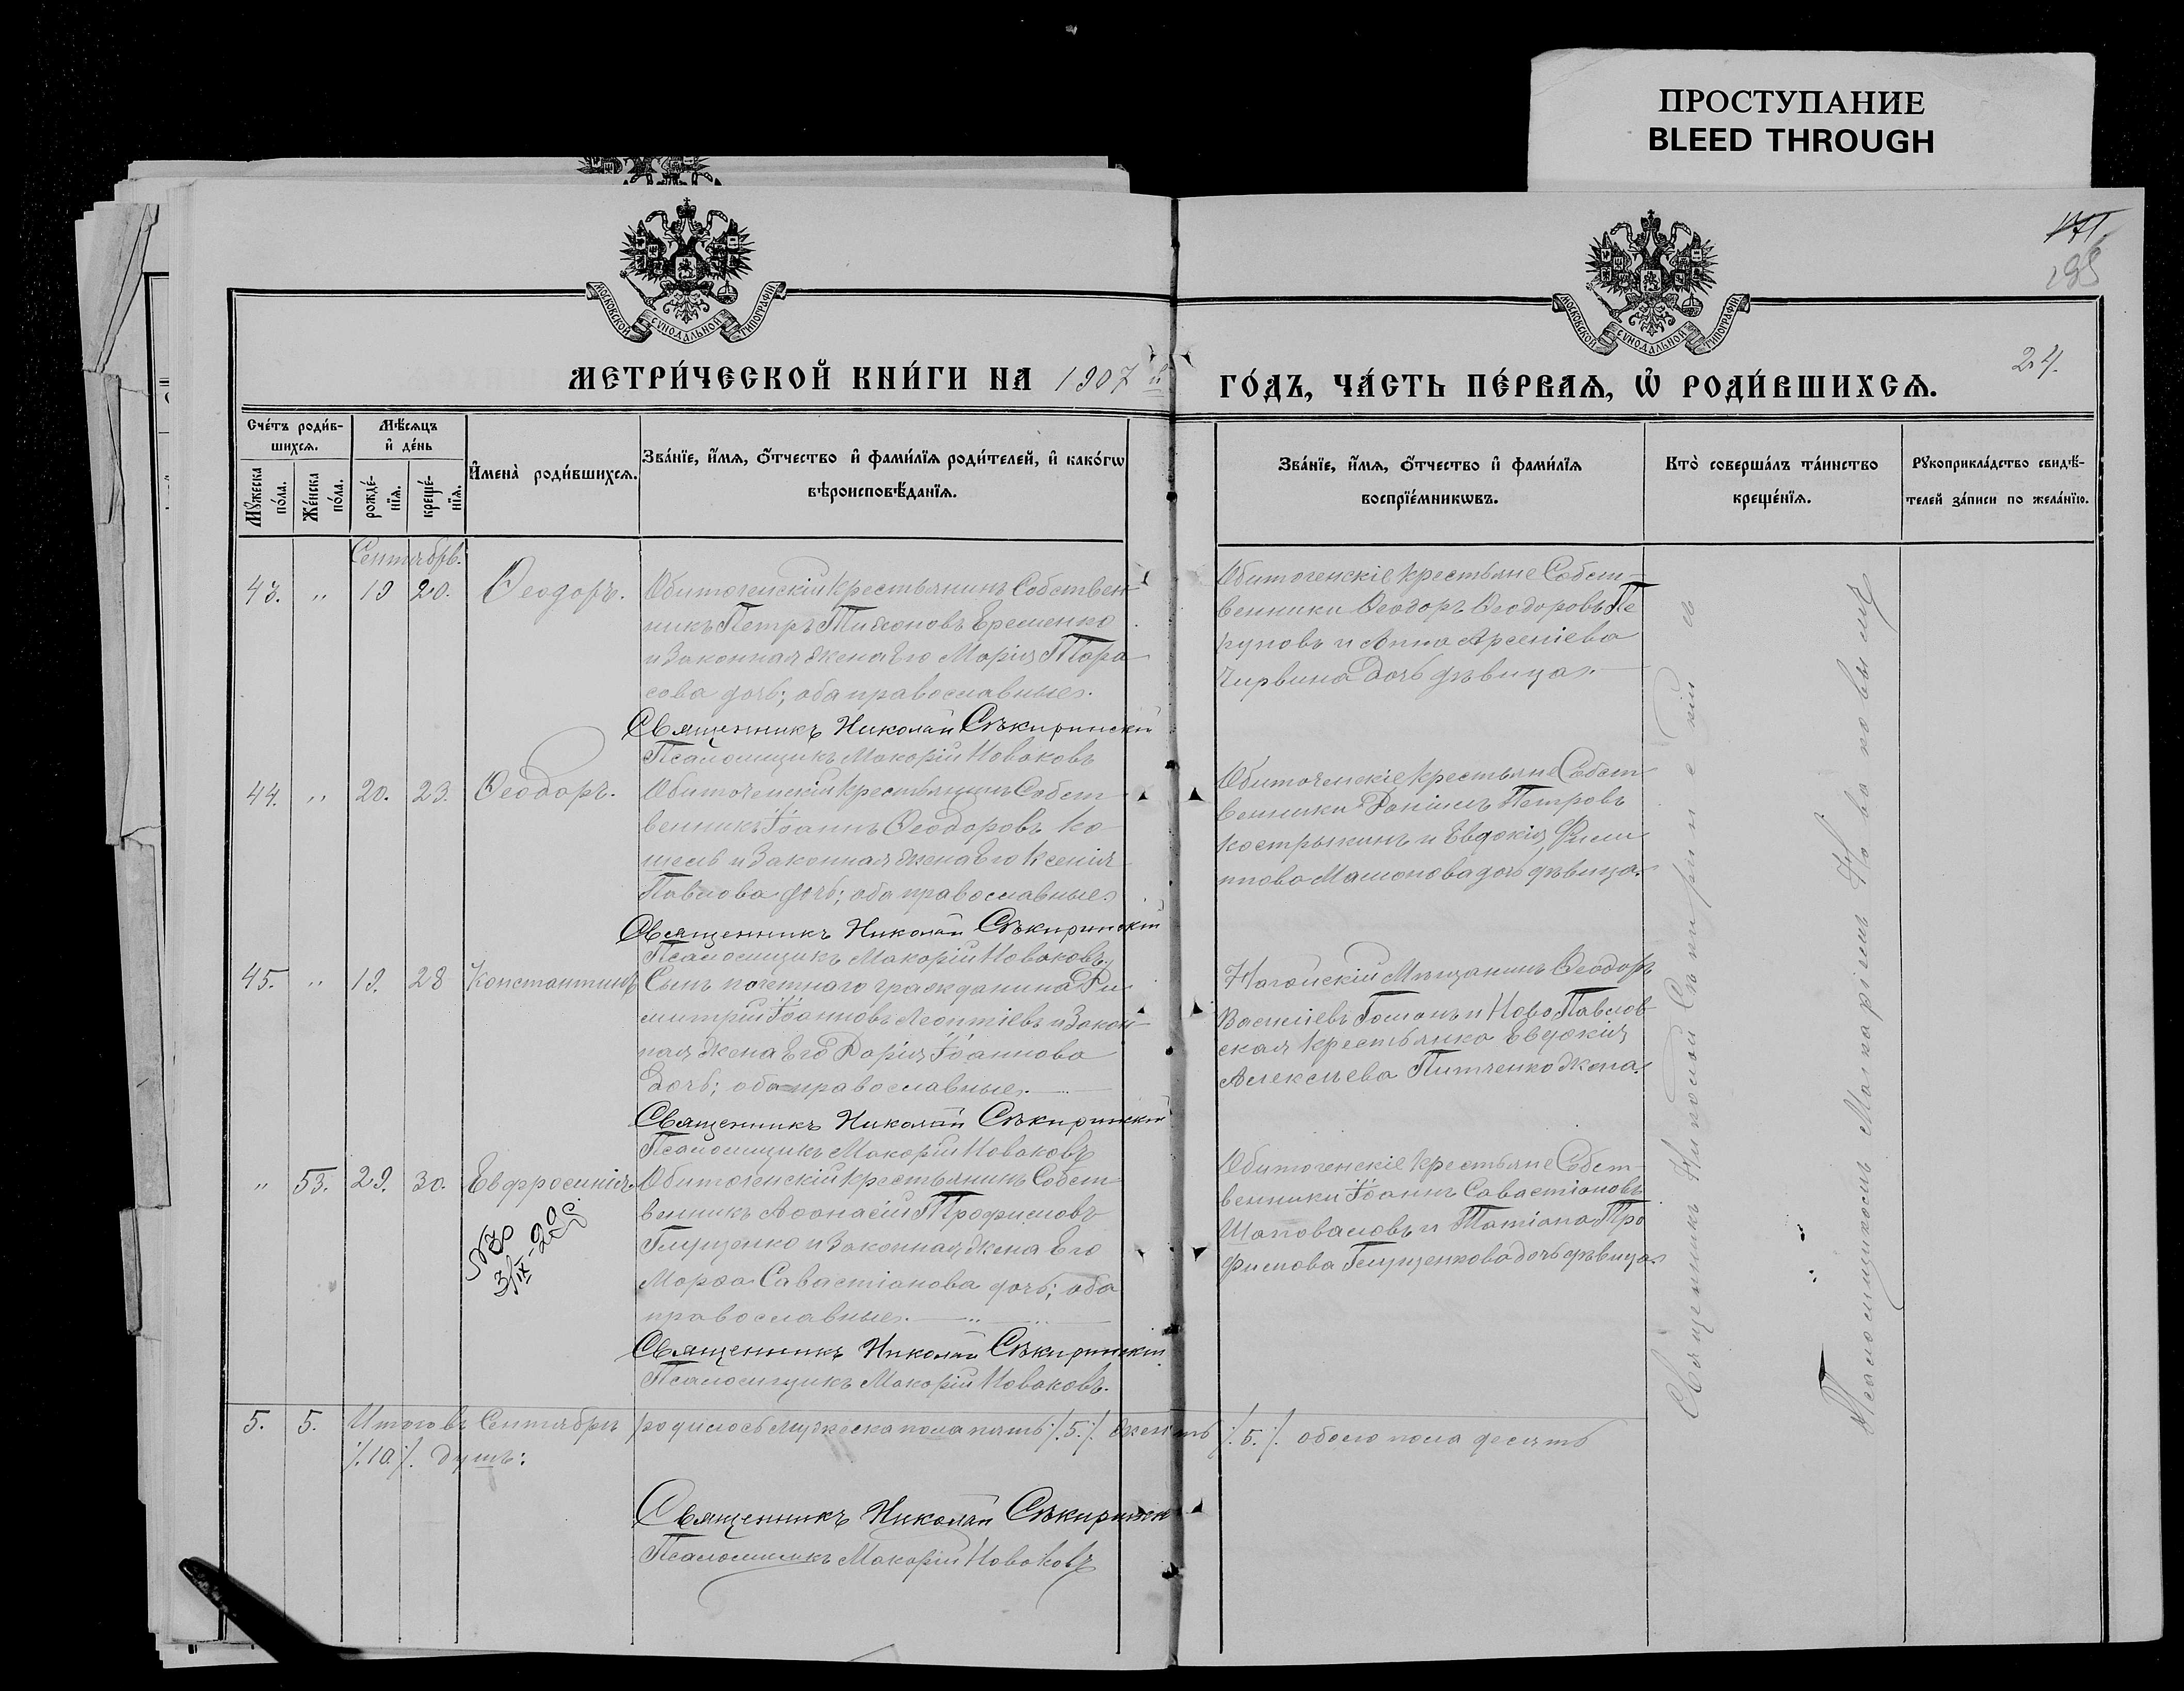 ПРОСТУПАНИЕ
BLEED THROUGH
МОСКОВСКОЙ СУНОДАЛЬНОЙ ТИПОГРАФИИ
МОСКОВСКОЙ СУНОДАЛЬНОЙ ТИПОГРАФИИ
171.
24.
МЕТРИ́ЧЕСКОЙ КНИ́ГИ НА 1907 й
ГО́ДЪ, ЧА́СТЬ ПЕ́РВАѦ, Ѡ҆ РОДИ́ВШИХСѦ.
Сче́тъ роди́в-
шихсѧ.
Мꙋ́жеска по́ла.
Же́нска по́ла.
Мѣ́сѧцъ
и҆ де́нь
рожде́-нїѧ.
креще́-нїѧ.
И҆мена̀ роди́вшихсѧ.
Зва́нїе, и҆́мѧ, ѻ҆́тчество и҆ фами́лїѧ роди́телей, и҆ како́гѡ
вѣроисповѣ́данїѧ.
Зва́нїе, и҆́мѧ, ѻ҆́тчество и҆ фами́лїѧ
воспрїе́мникѡвъ.
Кто̀ соверша́лъ та́инство
креще́нїѧ.
Рꙋкоприкла́дство свидѣ́-
телей за́писи по жела́нїю.
Сентябрь.
43. „ 19 20. Ѳеодоръ.
Обиточенскій крестьянинъ Собствен-
никъ Петръ Тимоновъ Еременко
и Законная жена Его Марія Тара
сова дочь; оба православные.
Священникъ Николай Сѣкиринскій
Псаломщикъ Макарій Новаковъ
Обиточенскіе крестьяне Собст-
венники Ѳеодоръ Ѳеодоровъ Пе
руновъ и Анна Арсеніева
Чирвина Дочь дѣвица.
44. „ 20. 23. Ѳеодоръ.
Обиточенскій крестьянинъ Собст-
венникъ Іоаннъ Ѳеодоровъ Ко-
шель и Законная жена Его Ксенія
Павлова дочь; оба православные.
Священникъ Николай Сѣкиринскій
Псаломщикъ Макарій Новаковъ
Обиточенскіе крестьяне Собст-
венники Даніилъ Петровъ
Кострыкинъ и Евдокія Фили
ппова Мамонова дочь дѣвица.
45. „ 19. 28 Константинъ
Сынъ почетнаго гражданина Ди
митрій Іоанновъ Леонтіевъ и Закон-
ная жена Его Дарія Іоаннова
Дочь; оба православные.
Священникъ Николай Сѣкиринскій
Псаломщикъ Макарій Новаковъ
Ногайскій Мѣщанинъ Ѳеодоръ
Василіевъ Гоманъ и Ново Павлов-
ская крестьянка Евдокія
Алексѣева Питченко жена.
„ 53. 29. 30. Евфросинія
Обиточенскій крестьянинъ Собст-
венникъ Аѳанасій Трофимовъ
Глущенко и Законная жена Его
Марѳа Савастіанова дочь; оба
православные.
Священникъ Николай Сѣкиринскій
Псаломщикъ Макарій Новаковъ.
Обиточенскіе крестьяне Собст-
венники Іоаннъ Савастіановъ
Шаповаловъ и Татіана Тро
фимова Глущенкова дочь дѣвица.
Священникъ Николай Сѣкиринскій и
Псаломщикомъ Макаріемъ Новаковымъ
5. 5. Итого въ Сентябрѣ родилось мужеска пола пять /.5./. женскъ /.5./. обоего пола десять
/.10./. душъ:
Священникъ Николай Сѣкиринскій
Псаломщикъ Макарій Новаковъ